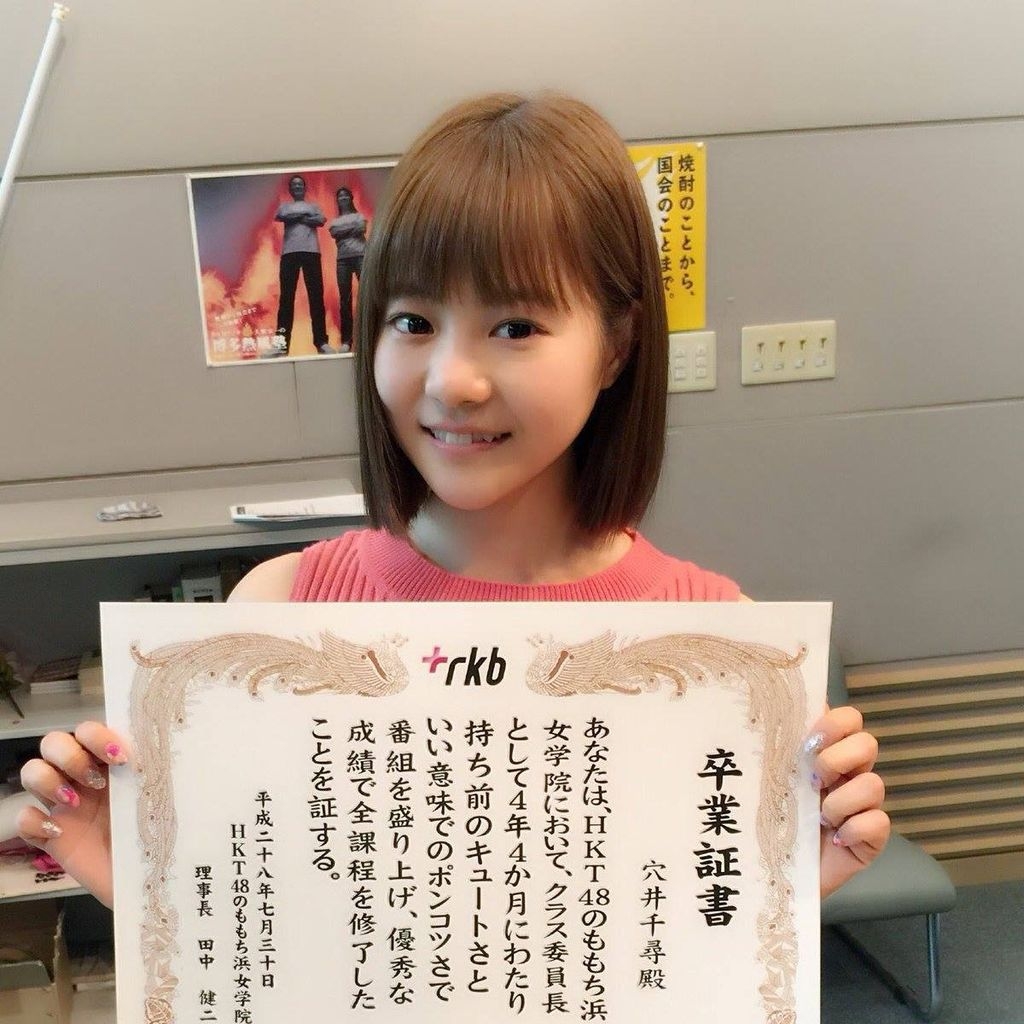 焼酎のことから、
国会のことまで。
博多熱風塾
rkb
卒業証書
穴井千尋殿
あなたは、HKT48のももち浜
女学院において、クラス委員長
として4年4か月にわたり
持ち前のキュートさと
いい意味でのポンコツさで
番組を盛り上げ、優秀な
成績で全課程を修了した
ことを証する。
平成二十八年七月三十日
HKT48のももち浜女学院
理事長 田中 健二